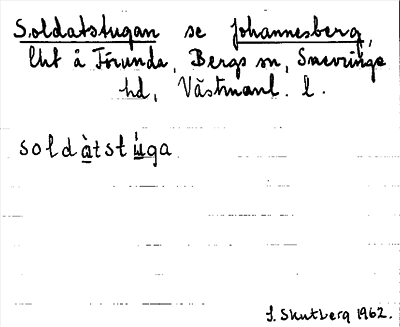 Soldatstugan se Johannesberg,
lht å Törunda, Bergs sn, Snevringe
hd, Västmanl. l.
soldàtstu̇ga
S. Skutberg 1962.